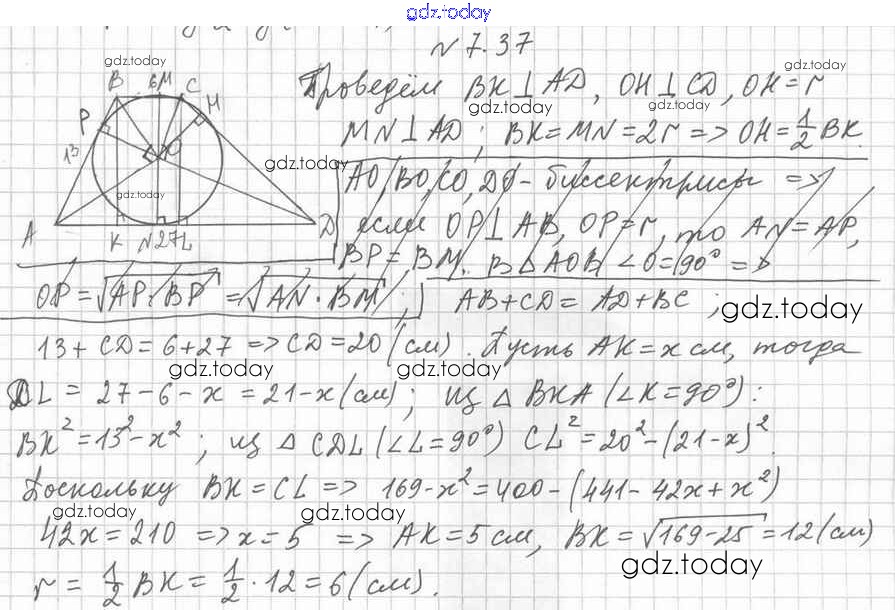 gdz.today
№ 7.37
gdz.today
Проведём BK ⊥ AD, OH ⊥ CD, OH = r
gdz.today
gdz.today
gdz.today
MN ⊥ AD; BK = MN = 2r => OH = 1/2 BK.
gdz.today
B 6 M C
P H
13 O
A K N 27 L D
gdz.today
AO, BO, CO, DO - биссектрисы =>
если OP ⊥ AB, OP = r, то AN = AP,
BP = BM. В △ AOB ∠O = 90° =>
OP = √AP·BP = √AN·BM;
AB + CD = AD + BC;
gdz.today
13 + CD = 6 + 27 => CD = 20 (см). Пусть AK = x см, тогда
gdz.today
gdz.today
DL = 27 - 6 - x = 21 - x (см); из △ BKA (∠K = 90°):
BK² = 13² - x²; из △ CDL (∠L = 90°) CL² = 20² - (21 - x)².
Поскольку BK = CL => 169 - x² = 400 - (441 - 42x + x²)
gdz.today
gdz.today
42x = 210 => x = 5 => AK = 5 см, BK = √169 - 25 = 12 (см)
gdz.today
r = 1/2 BK = 1/2 · 12 = 6 (см).